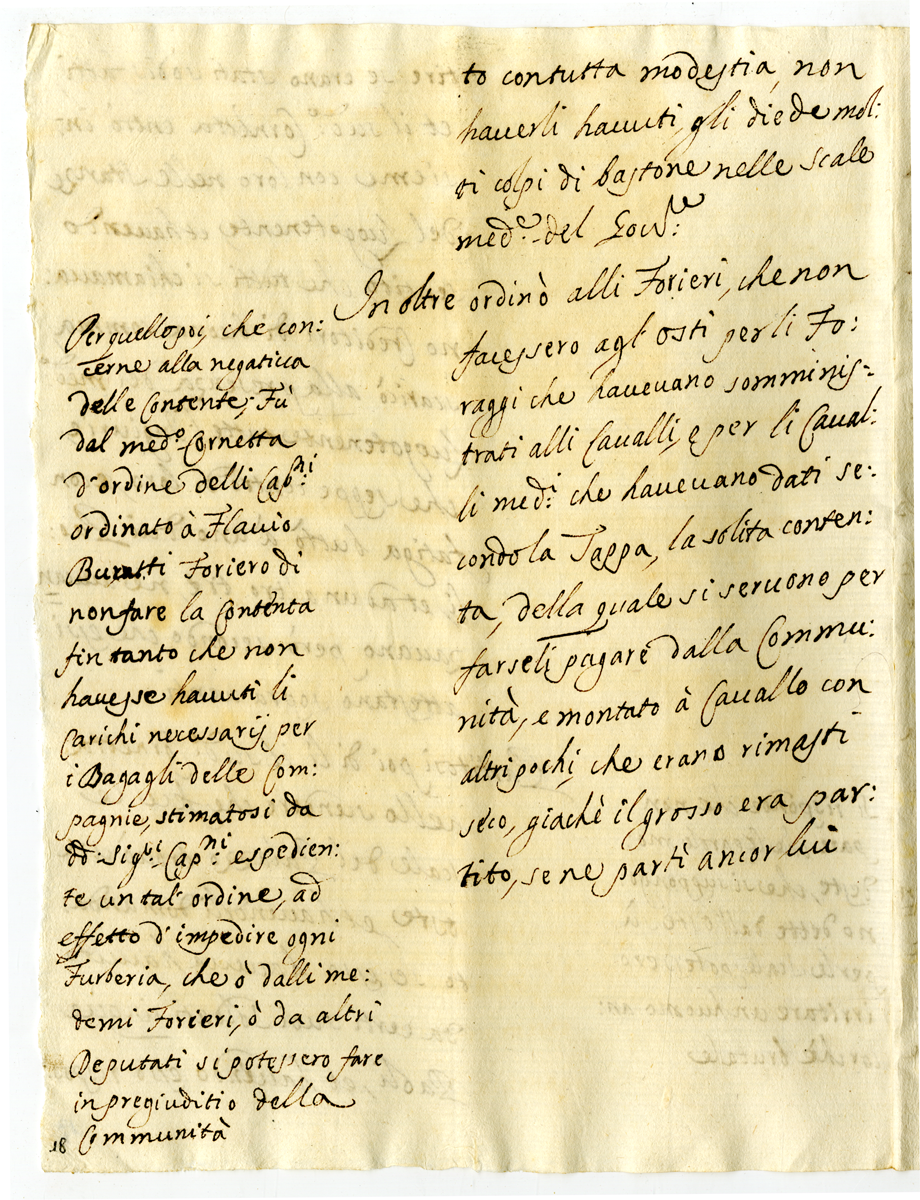 to con tutta modestia, non
hauerli hauuti, gli diede mol:
ti colpi di bastone nelle scale
med.e del Gou.re:
In oltre ordinò alli Forieri, che non
facessero agl'osti per li Fo:
raggi che haueuano somminis-
trati alli Caualli, e per li Caual:
li med.i che haueuano dati se:
condo la Tappa, la solita conten:
ta, della quale si seruono per
farseli pagare dalla Commu:
nità, e montato à Cauallo con
altri pochi, che erano rimasti
seco, giachè il grosso era par:
tito, se ne partì ancor lui
Per quello poi, che con:
cerne alla negatiua
delle Contente, Fù
dal med.o Cornetta
d'ordine delli Cap.ni
ordinato à Flauio
Buratti Foriero di
non fare la Contenta
fin tanto che non
hauesse hauuti li
Carichi necessarij per
i Bagagli delle Com:
pagnie, stimatosi da
dd: Sig.ri Cap.ni espedien:
te un tal'ordine, ad
effetto d'impedire ogni
Furberia, che ò dalli me:
demi Forieri, ò da altri
Deputati si potessero fare
in pregiuditio della
Communità
18